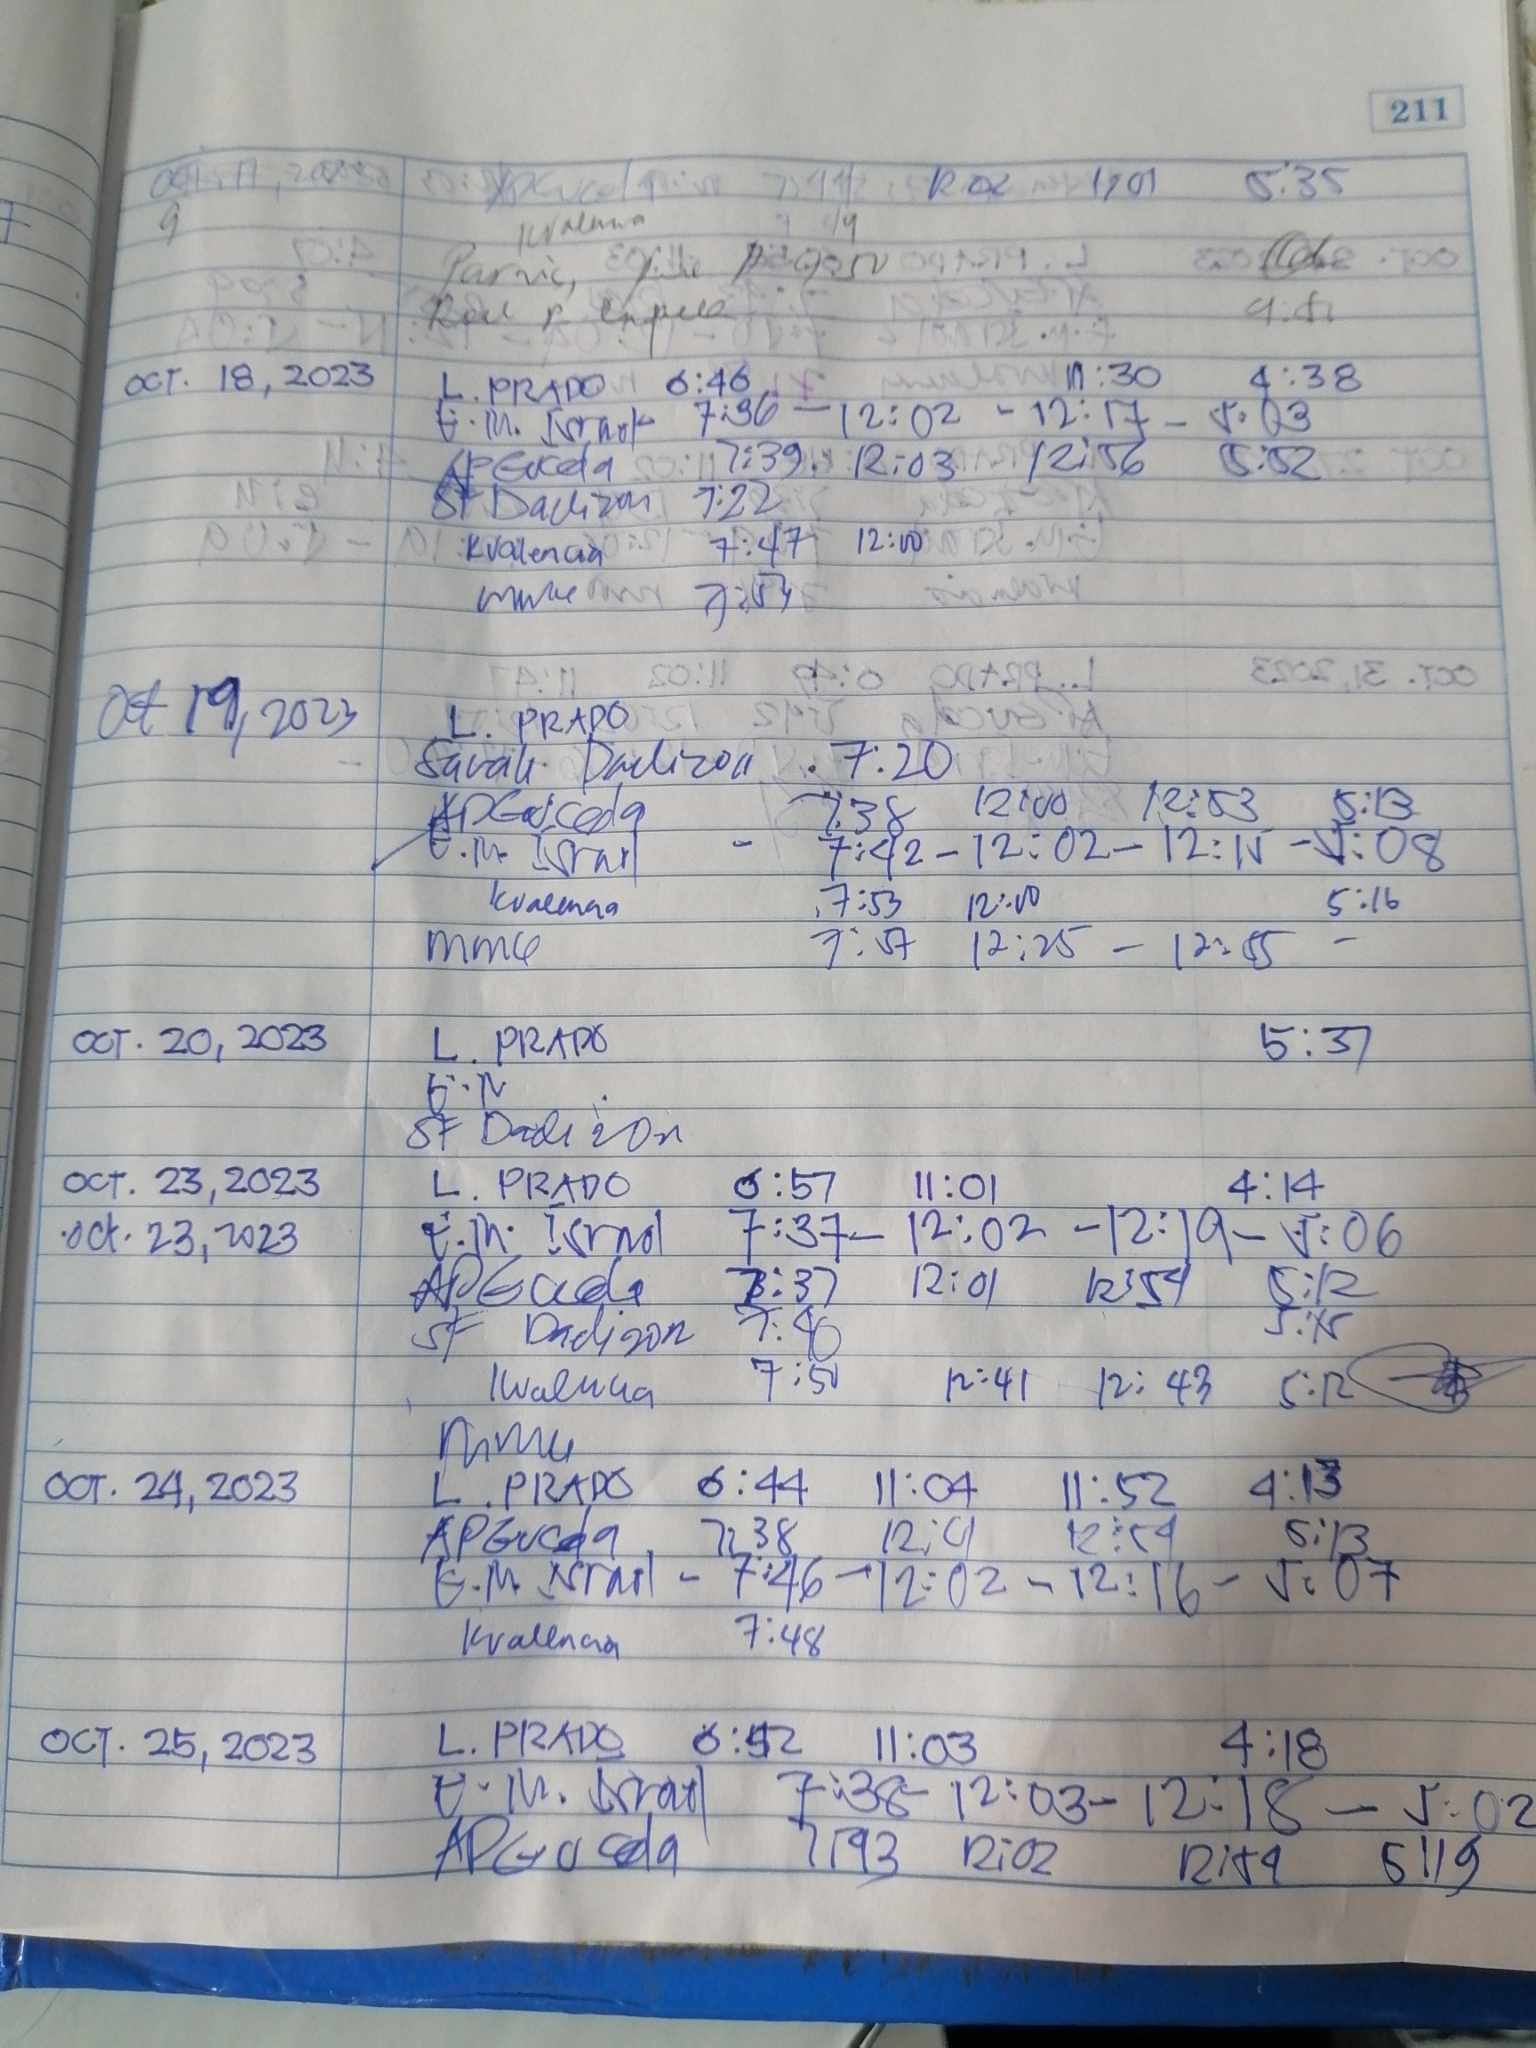 211
12:02 1:01 5:35
Kvalencia
OCT. 18, 2023 L. PRADO 6:46 11:30 4:38
E.M. Israel 7:36 - 12:02 - 12:17 - 5:03
APGuceda 7:39 12:03 12:56 5:52
SF Dadizon 7:22
Kvalencia 7:47 12:00
7:54
Oct 19, 2023 L. PRADO
Sarah Dadizon . 7:20
APGuceda 7:38 12:00 12:53 5:13
E.M. Israel - 7:42 - 12:02 - 12:15 - 5:08
Kvalencia 7:53 12:00 5:16
7:57 12:25 - 12:55 -
OCT. 20, 2023 L. PRADO 5:37
SF Dadizon
OCT. 23, 2023 L. PRADO 6:57 11:01 4:14
Oct. 23, 2023 E.M. Israel 7:37 - 12:02 - 12:19 - 5:06
APGuceda 7:37 12:01 12:54 5:12
SF Dadizon 7:40 5:15
Kvalencia 7:50 12:41 12:43 5:12
OCT. 24, 2023 L. PRADO 6:44 11:04 11:52 4:13
APGuceda 7:38 12:01 12:54 5:13
E.M. Israel - 7:46 - 12:02 - 12:16 - 5:07
Kvalencia 7:48
OCT. 25, 2023 L. PRADO 6:52 11:03 4:18
E.M. Israel 7:38 - 12:03 - 12:18 - 5:02
APGuceda 7:43 12:02 12:54 5:19